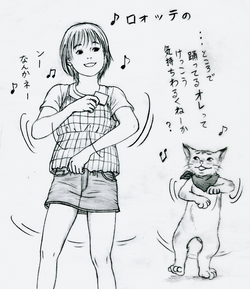 ♪ロォッテの
…ところで
踊ってるオレって
けっこう
気持ちわるくねーか
?
ンー
なんかネー